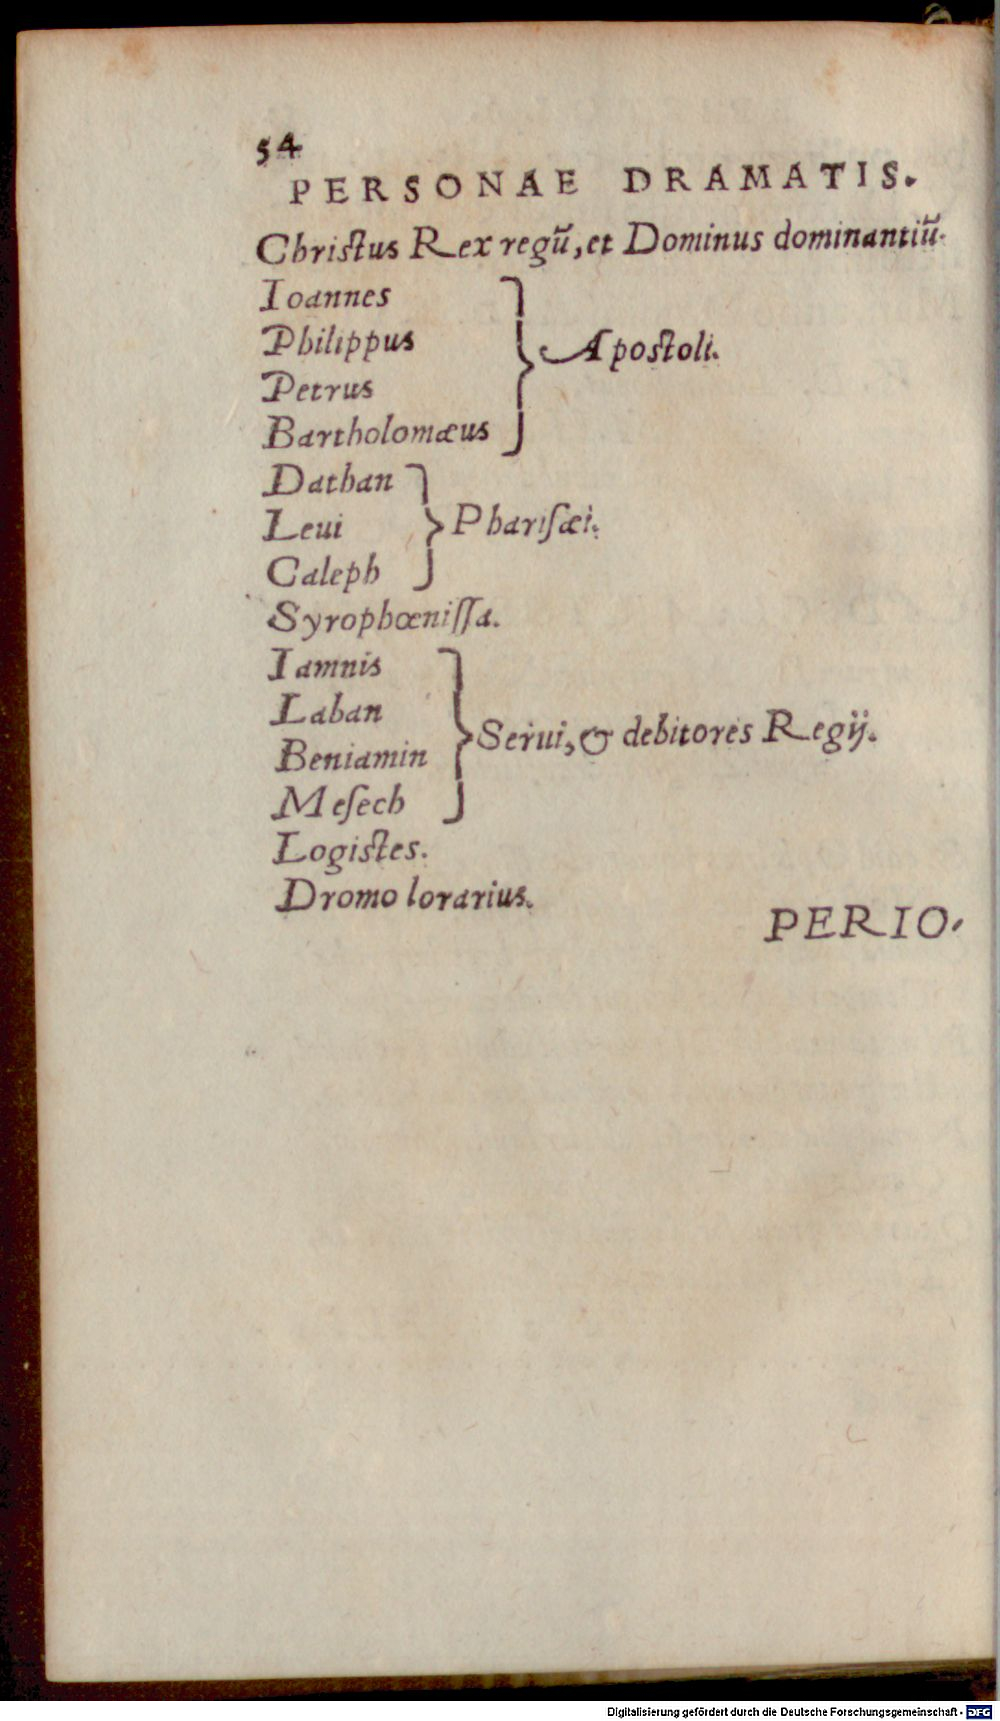 54
PERSONAE DRAMATIS.
Chriſtus Rex regū, et Dominus dominantiū.
Ioannes
Philippus
Petrus
Bartholomæus
Apoſtoli.
Dathan
Leui
Caleph
Phariſæi.
Syrophœniſſa.
Iamnis
Laban
Beniamin
Meſech
Serui, & debitores Regij.
Logiſtes.
Dromo lorarius.
PERIO-
Digitalisierung gefördert durch die Deutsche Forschungsgemeinschaft - DFG